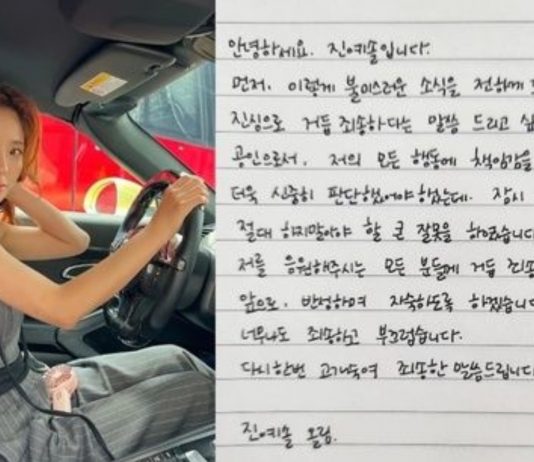 안녕하세요. 진예솔입니다.
먼저, 이렇게 불미스러운 소식을 전하게
진심으로 거듭 죄송하다는 말씀 드리고
공인으로서, 저의 모든 행동에 책임감을
더욱 신중히 판단했어야 했는데. 잠시
절대 하지말아야 할 큰 잘못을 하였습니다
저를 응원해주시는 모든 분들에게 거듭
앞으로, 반성하며 자숙하도록 하겠습니다
너무나도 죄송하고 부끄럽습니다.
다시한번 고개숙여 죄송한 말씀드립니다
진예솔 올림.